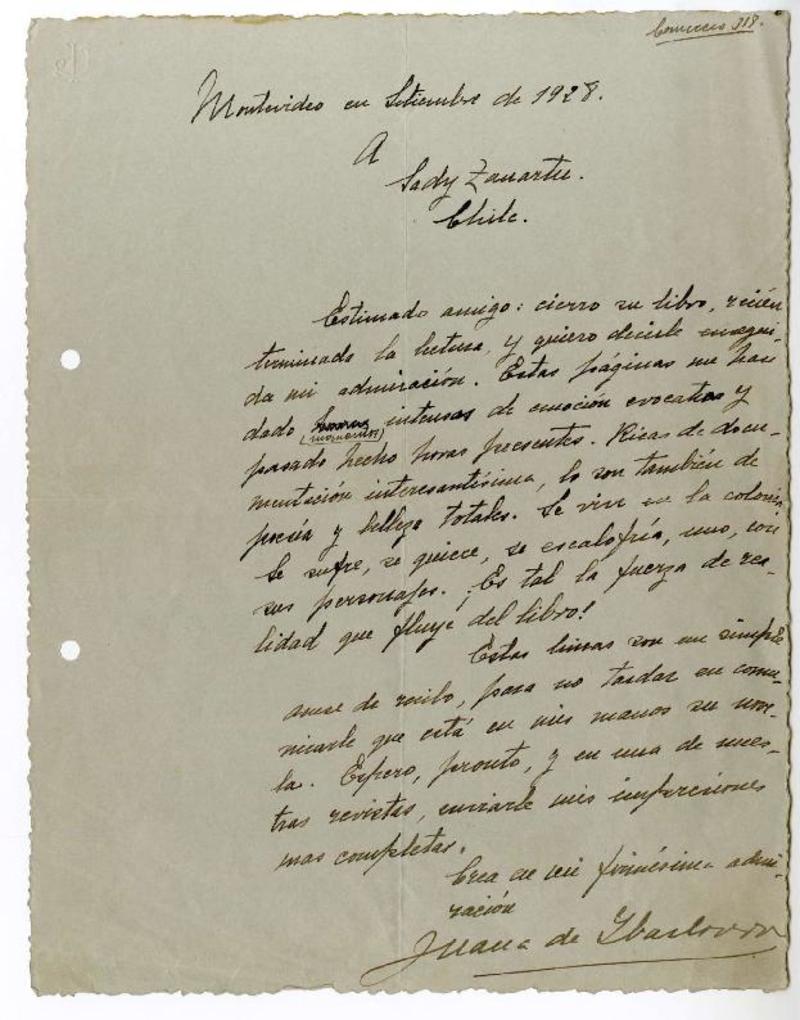 Comercio 318.
Montevideo en Setiembre de 1928.
A
Sady Zanartu.
Chile.
Estimado amigo: cierro su libro, recién
terminada la lectura, y quiero decirle ensegui-
da mi admiración. Estas páginas me han
dado horas (momentos) intensas de emoción evocativa y
pasado hecho horas presentes. Ricas de docu-
mentación interesantísima, lo son también de
poesía y belleza totales. Se vive en la colonia,
Se sufre, se quiere, se escalofría, uno, con
sus personajes. ¡Es tal la fuerza de rea-
lidad que fluye del libro!
Estas líneas son un simple
acuse de recibo, para no tardar en comu-
nicarle que está en mis manos su nove-
la. Espero, pronto, y en una de nues-
tras revistas, enviarle mis impresiones
mas completas.
Crea en mi finísima admi-
ración
Juana de Ibarbourou